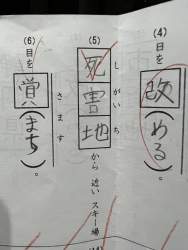 (4) 日を 改(める)。
(5) 死害地 から 近い スキー場
しがいち
(6) 目を 賞(まち)。
さます